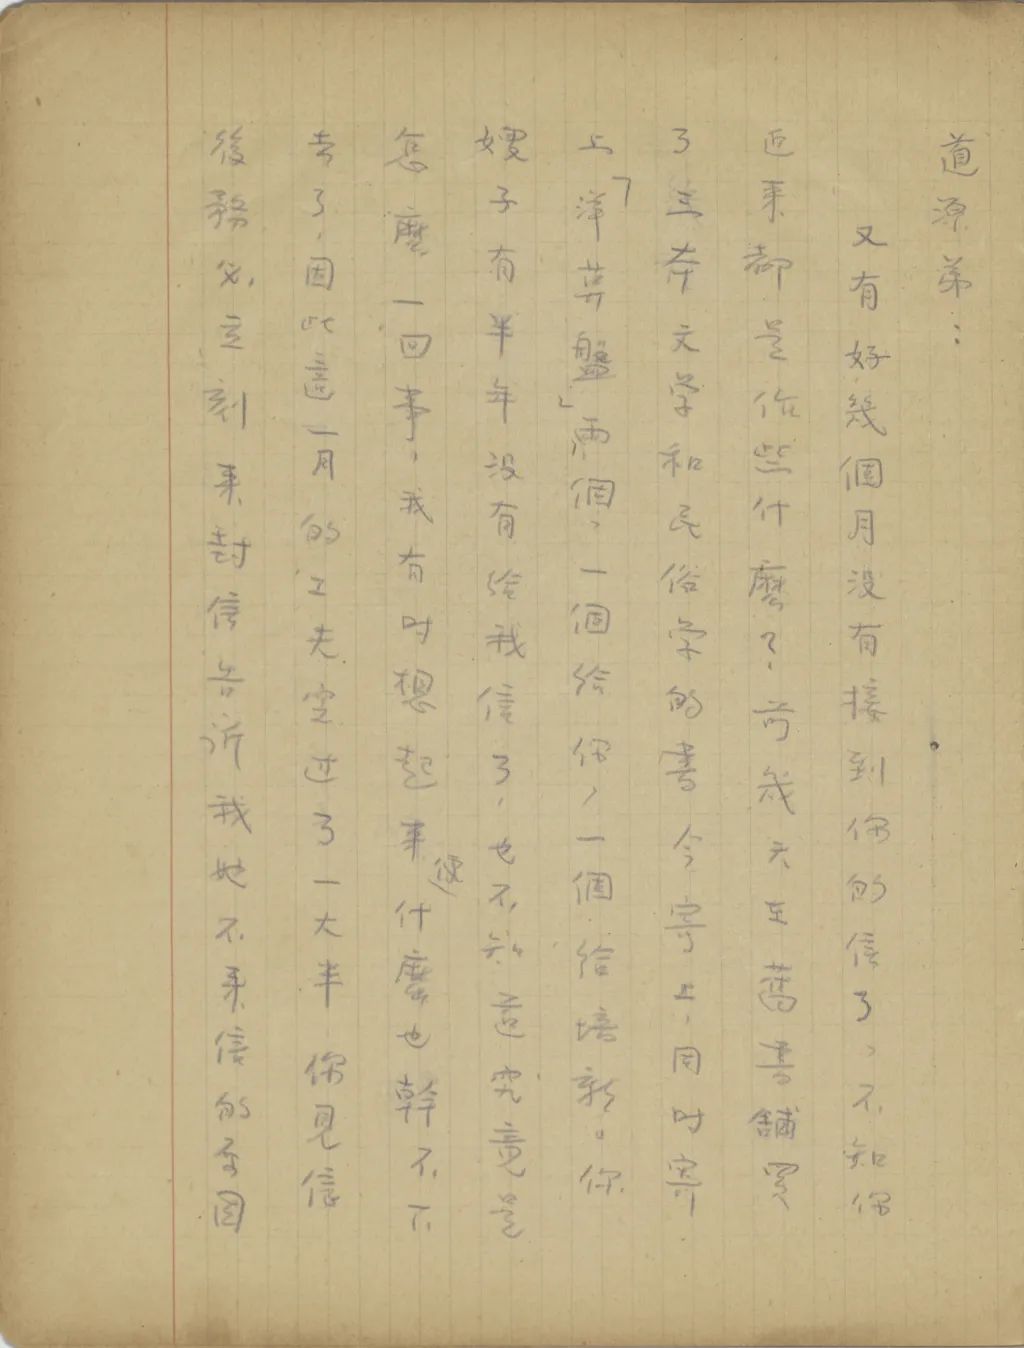 道源弟：
又有好幾個月没有接到你的信了，不知你
近来都是作些什麽了，前幾天在舊書舖買
了三本文学和民俗学的書今寄上，同时寄
上「洋算盤」兩個，一個给你，一個给培新。你
嫂子有半年没有给我信了，也不知這究竟是
怎麽一回事，我有时想起来便什麽也幹不下
去了，因此這一月的工夫空过了一大半 你見信
後務必立刻来封信告訴我她不来信的原因